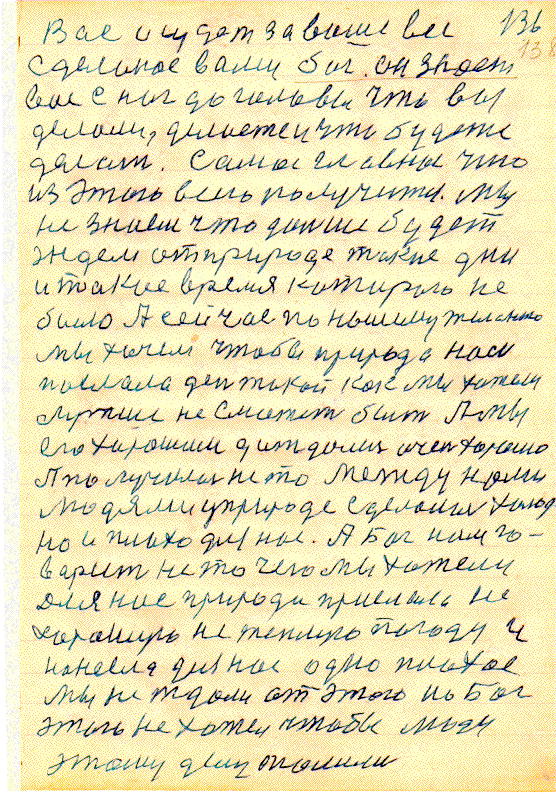 136
138
Вас и будет за выше все
сделоное вами бог. он знает
вас с ног до головы что вы
делали, делаете и что будете
делат. Самое главное что
из этого всего получити. Мы
не знаем что дальше будет
ждем от природе такие дни
и такое время которого не
было А сейчас по нашему желанию
мы хочем чтобы природа нам
послала ден такой как мы хотели
лучше не сможет быт А мы
его хорошим дождалис очен хорошо
А получилос не то между нами
людями и природе сделалос холод
но и плохо для нас. А Бог нам го-
варит не то чего мы хотели
Для нас природа прислала не
хорошую не теплую погоду и
нанесла для нас одно плохое
мы не ждали от этого но Бог
этого не хотел чтобы люди
этому делу